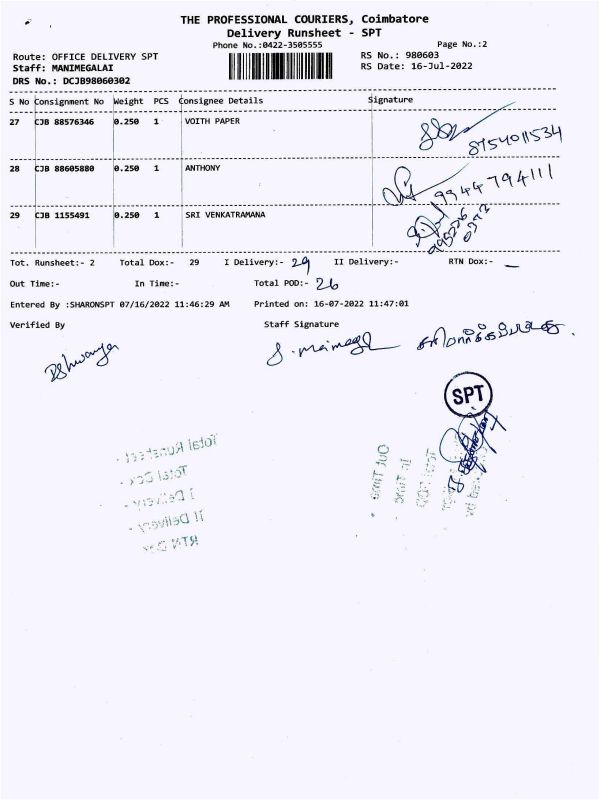 THE PROFESSIONAL COURIERS, Coimbatore
Delivery Runsheet - SPT
Phone No.:0422-3505555 Page No.:2
Route: OFFICE DELIVERY SPT RS No.: 980603
Staff: MANIMEGALAI RS Date: 16-Jul-2022
DRS No.: DCJB98060302
S No Consignment No Weight PCS Consignee Details Signature
27 CJB 88576346 0.250 1 VOITH PAPER
8754011534
28 CJB 88605880 0.250 1 ANTHONY
9944794111
29 CJB 1155491 0.250 1 SRI VENKATRAMANA
Tot. Runsheet:- 2 Total Dox:- 29 I Delivery:- 29 II Delivery:- RTN Dox:- —
Out Time:- In Time:- Total POD:- 26
Entered By :SHARONSPT 07/16/2022 11:46:29 AM Printed on: 16-07-2022 11:47:01
Verified By Staff Signature
SPT
Total Runsheet -
Total Dox -
I Delivery -
II Delivery -
RTN Dox
Out Time
In Time
Total POD